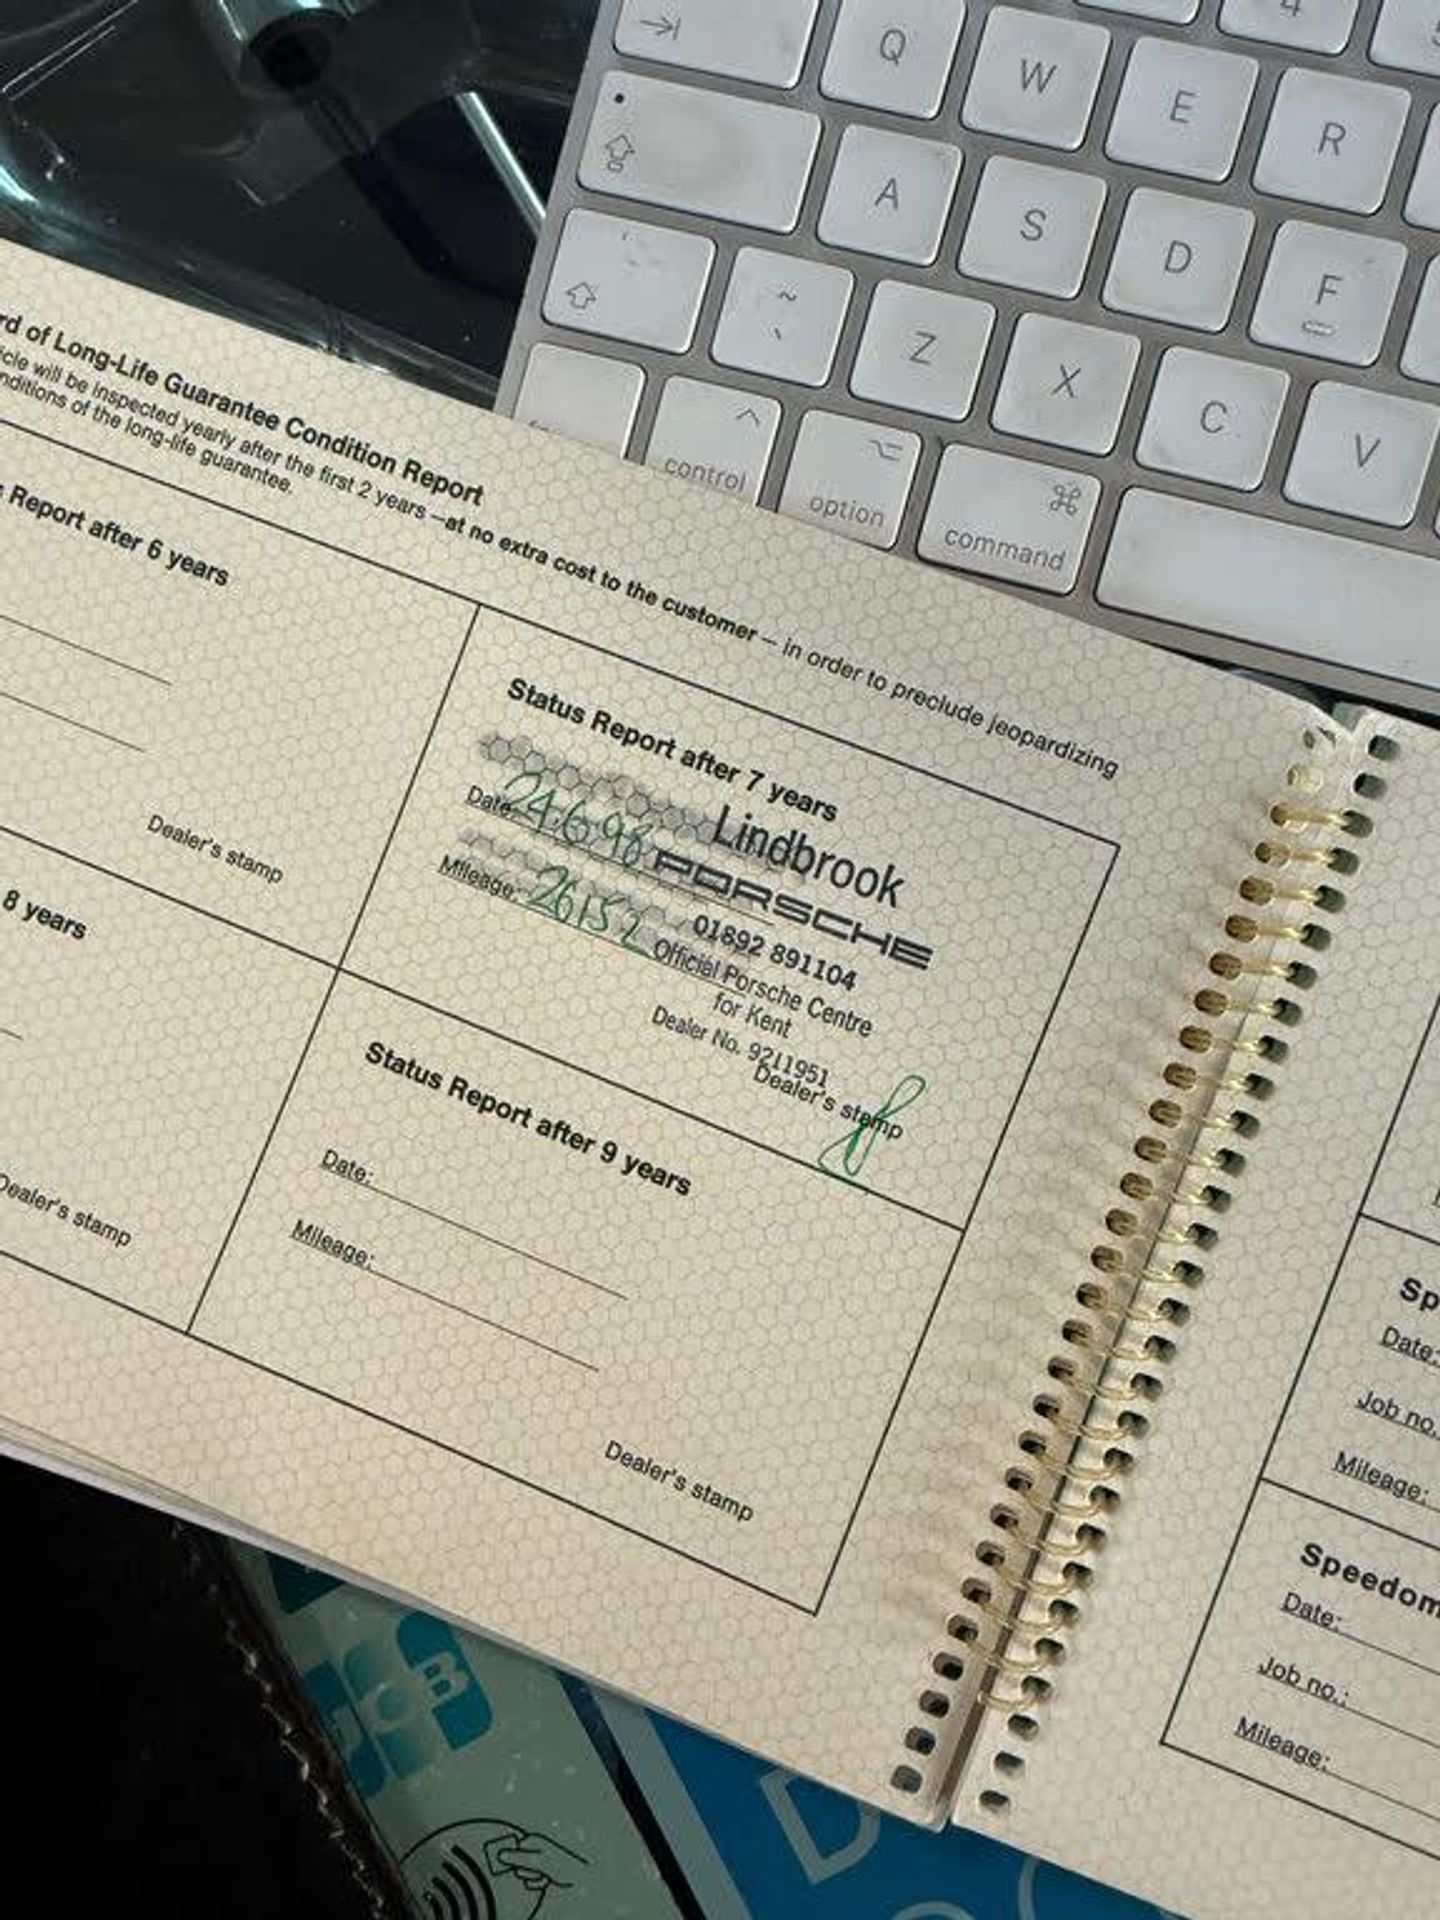 Q
W
E
R
A
S
D
F
~
Z
X
C
V
control
option
command
rd of Long-Life Guarantee Condition Report
icle will be inspected yearly after the first 2 years – at no extra cost to the customer – in order to preclude jeopardizing
nditions of the long-life guarantee.
Report after 6 years
Dealer's stamp
Status Report after 7 years
Date: 24.6.98
Mileage: 26152
Lindbrook
PORSCHE
01892 891104
Official Porsche Centre
for Kent
Dealer No. 9211951
Dealer's stamp
8 years
Dealer's stamp
Status Report after 9 years
Date:
Mileage:
Dealer's stamp
Sp
Date:
Job no.
Mileage:
Speedom
Date:
Job no.:
Mileage:
JCB